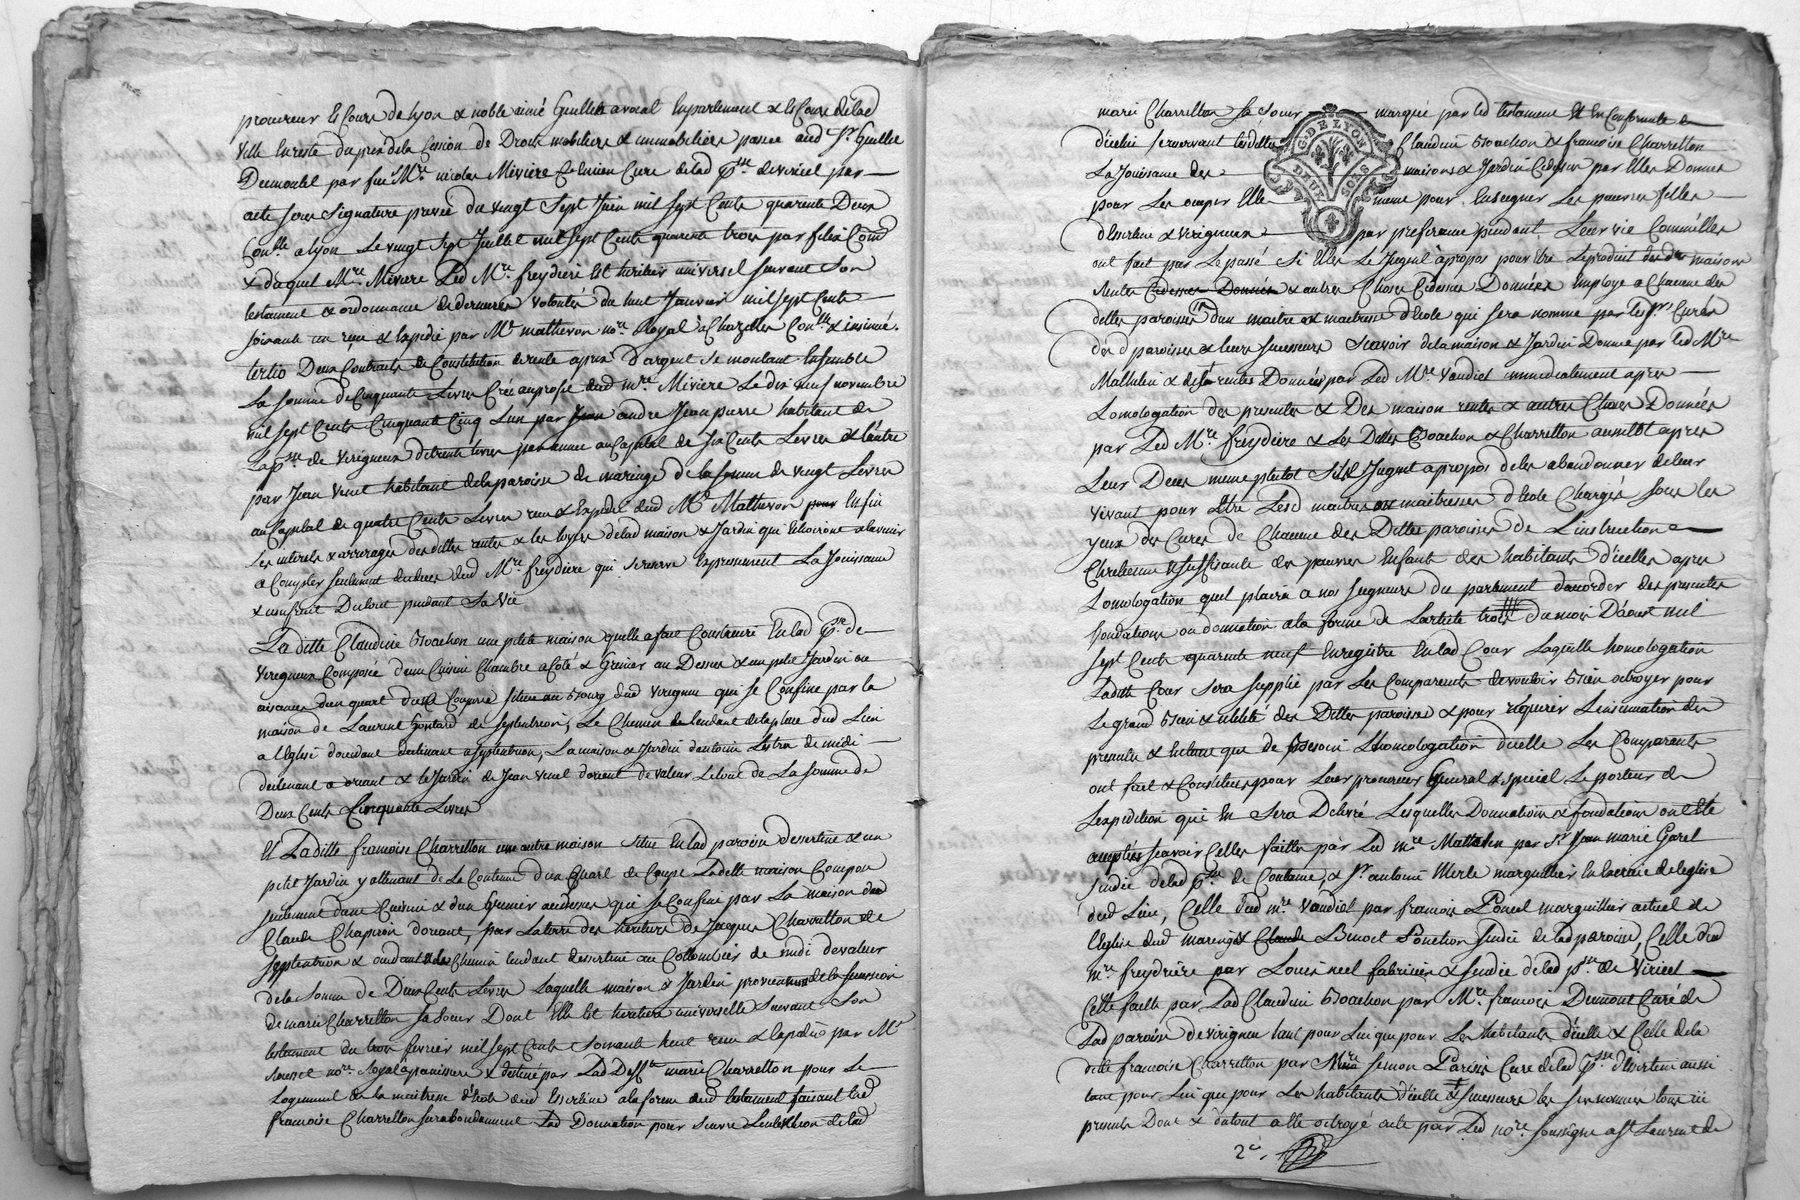 procureur es Cours de Lyon & noble aimé Guillet avocat en parlement & es Cours de lad
ville en reste du prix de la Cession de Droits mobiliers & immobiliers passée aud Sr. Guillet
Dumontel par feu Mre. nicolas Miviere Cy ancien Curé de lad pse. de viricel par
acte sous signature privée du vingt sept Juin mil sept Cents quarente Deux
Conllé a Lyon Le vingt sept Juillet mil sept Cents quarente trois par
& duquel Mre. Miviere Led Mre. freydiere est heritier universel suivant son
testament & ordonnance de derniere volonté du huit Janvier mil sept Cents
soixante un reçu & Expedié par Me matthevon nore. Royal a Chazelles Conllé & insinué.
tertio Deux Contracts de Constitution de rente a prix d'argent se montant Ensemble
La somme de Cinquante Livres Créé au profit dud mre. Miviere Le dix neuf novembre
mil sept Cents Cinquante Cinq L'un par Jean andré Jean pierre habitant de
la pse. de Virigneux de trente livres par année au Capital de six Cents Livres & l'autre
par Jean Venet habitant de la paroisse de maringe de la somme de vingt Livres
au Capital de quatre Cents Livres reçu & Expedié dud Me. Mathevon pour Enfin
Les interets & arrerages des dittes rentes & les loyers de lad maison & Jardin qui a l'avenir
a Compter seulement du deces dud Mre. freydiere qui se reserve Expressement La Jouissance
& usufruit Du tout pendant sa vie
La ditte Claudine Boachon une petite maison quelle a fait Construire En lad pse. de
Virigneux Composée d'une Cuisine Chambre a Coté & Grenier au Dessus & un petit Jardin ou
aisances d'un quart de Coupée situé au Bourg dud Virigneux qui se Confine par la
maison de Laurent de septentrion, Le Chemin tendant de la place dud Lieu
a l'Eglise d'occident declinant a septentrion, La maison & Jardin d'antoine Lestra de midi
declinant a orient & le Jardin de Jean Venet d'orient de valeur Le tout de La somme de
Deux Cents Cinquante Livres
Et Laditte francoise Charretton une autre maison située En lad paroisse dessertine & un
petit Jardin y attenant de La Contenue d'un Quart de Coupé Laditte maison Composée
seulement d'une Cuisine & d'un Grenier au dessus qui se Confine par La maison de
Claude Chapiron d'orient, par La terre des heritiers de Jacques Charretton de
septentrion & occident & le Chemin tendant dessertine au Collombier de midi de valeur
de la somme de Deux Cents Livres Laquelle maison & Jardin provenus de la succession
de marie Charretton sa soeur Dont Elle Est heritiere universelle suivant son
testament du trois fevrier mil sept Cents soixante huit reçu & Expedié par Me
nore. Royal a panissiere & destiné par Lad Deffte marie Charretton pour Le
Logement de la maitresse d'école dud Essertine a la forme dud testament faisant lad
francoise Charretton surabondamment Lad Donnation pour suivre L'intention de lad
marie Charretton sa soeur marquée par led testament Et En Conformité
d'icelui se reservant lesdittes Claudine Boachon & francoise Charretton
La Jouissance des maisons & Jardin Cidessus par Elles Donnés
pour Les occuper Elle meme pour Enseigner Les pauvres filles
d'Essertine & virigneux par preference pendant Leur vie Comme Elles
ont fait par Le passé Si Elles Le Jugent apropos pour Etre Le produit desdes maisons
Rentes Cidessus Données & autres Choses Cidessus Données Employé a Chacune des
dittes paroisses d'un maitre ou maitresse d'école qui sera nommé par lesd Srs. Curés
desd paroisses & leurs successeurs Scavoir de la maison & Jardin Donné par led Mre
Mathelin & des rentes Données par Led Mre Vaudiet immediatement apres
L'omologation des presentes & Des maison rentes & autres Choses Données
par Led Mre. freydiere & Les Dittes Boachon & Charretton aussitot apres
Leur Deces meme plutot S'ils Jugent apropos de les abandonner de leur
vivant pour Etre Lesd maitres ou maitresses d'école Chargés sous les
yeux des Curés de Chacune des Dittes paroisses de L'instruction
Chretienne & suffisante des pauvres Enfants des habitants d'icelles apres
L'omologation quil plaira a nos seigneurs du parlement d'accorder des presentes
fondations ou donnation a la forme de L'article trois du mois D'aoust mil
sept Cents quarente neuf Enregistré En lad Cour Laquelle homologation
Laditte Cour sera supplié par Les Comparents de vouloir Bien octroyer pour
Le grand Bien & utilité des Dittes paroisses & pour requerir L'insinuation des
presentes & Entant que de Besoin L'homologation d'icelle Les Comparants
ont fait & Constitué pour Leur procureur General & special Le porteur de
L'expedition qui En Sera Delivré Lesquelles Donnations & fondations ont Eté
acceptées scavoir Celles faittes par Led mre. Mathelin par Sr Jean marie Garel
sindic de lad pse. de & Sr. antoine Merle marguillier En L'eglise
dud Lieu, Celle dud mre. Vaudiet par francois Poncet marguillier actuel de
L'eglise dud maringe & Claude Benoit Ponchon sindic de lad paroisse, Celle dud
mre. freydiere par Louis neel fabricien & sindic de lad pse. de Viricel
Celle faitte par Lad Claudine Boachon par Mre. francois Dumont Curé de
Lad paroisse de virigneux tant pour Lui que pour Les habitants d'icelle & Celle de la
ditte francoise Charretton par Mre. simon Parisis Curé de lad pse. d'Essertine aussi
tant pour Lui que pour Les habitants d'icelle & successeurs les susnommés tous ici
presents Dont & du tout a Eté octroyé acte par Led nore. soussigné a St Laurent de
2e.
G. DE LYON
DEUX SOLS